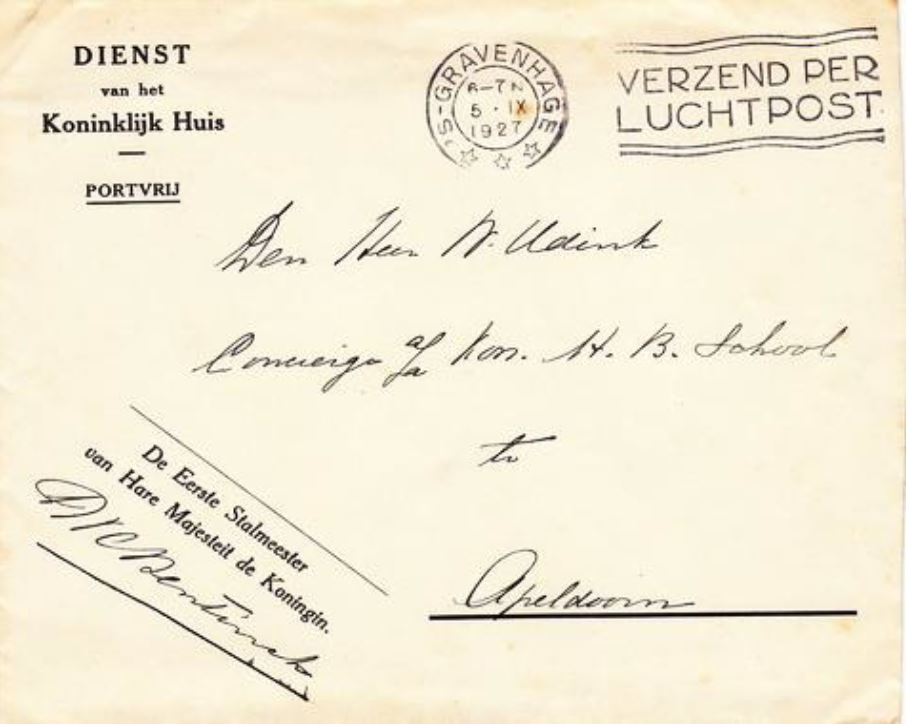 DIENST
van het
Koninklijk Huis
PORTVRIJ
'S-GRAVENHAGE
6-7 N
5 · IX
1927
VERZEND PER
LUCHTPOST
Den Heer W. Udink
Concierge a/d Kon. H. B. School
te
Apeldoorn
De Eerste Stalmeester
van Hare Majesteit de Koningin.
Bentinck